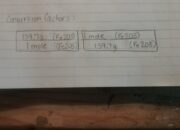 Conversion factors:
159.7g (Fe2O3) 1mole (Fe2O3)
1mole (Fe2O3) 159.7g (Fe2O3)